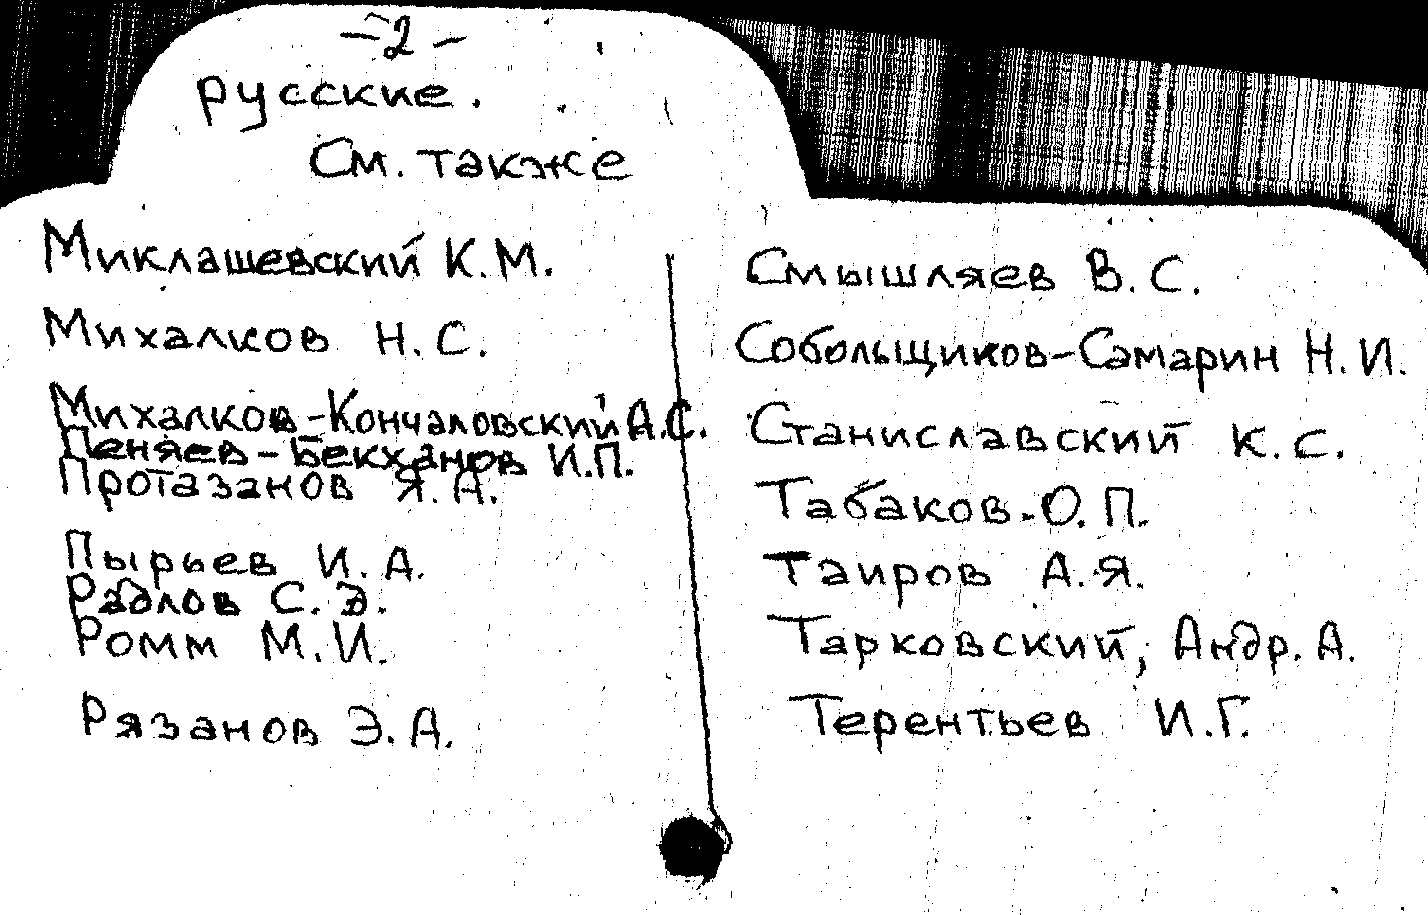 -2-
русские.
См. также
Миклашевский К.М.
Михалков Н.С.
Михалков-Кончаловский А.С.
Пеняев-Бекханов И.П.
Протазанов Я.А.
Пырьев И.А.
Радлов С.Э.
Ромм М.И.
Рязанов Э.А.
Смышляев В.С.
Собольщиков-Самарин Н.И.
Станиславский К.С.
Табаков О.П.
Таиров А.Я.
Тарковский, Андр. А.
Терентьев И.Г.